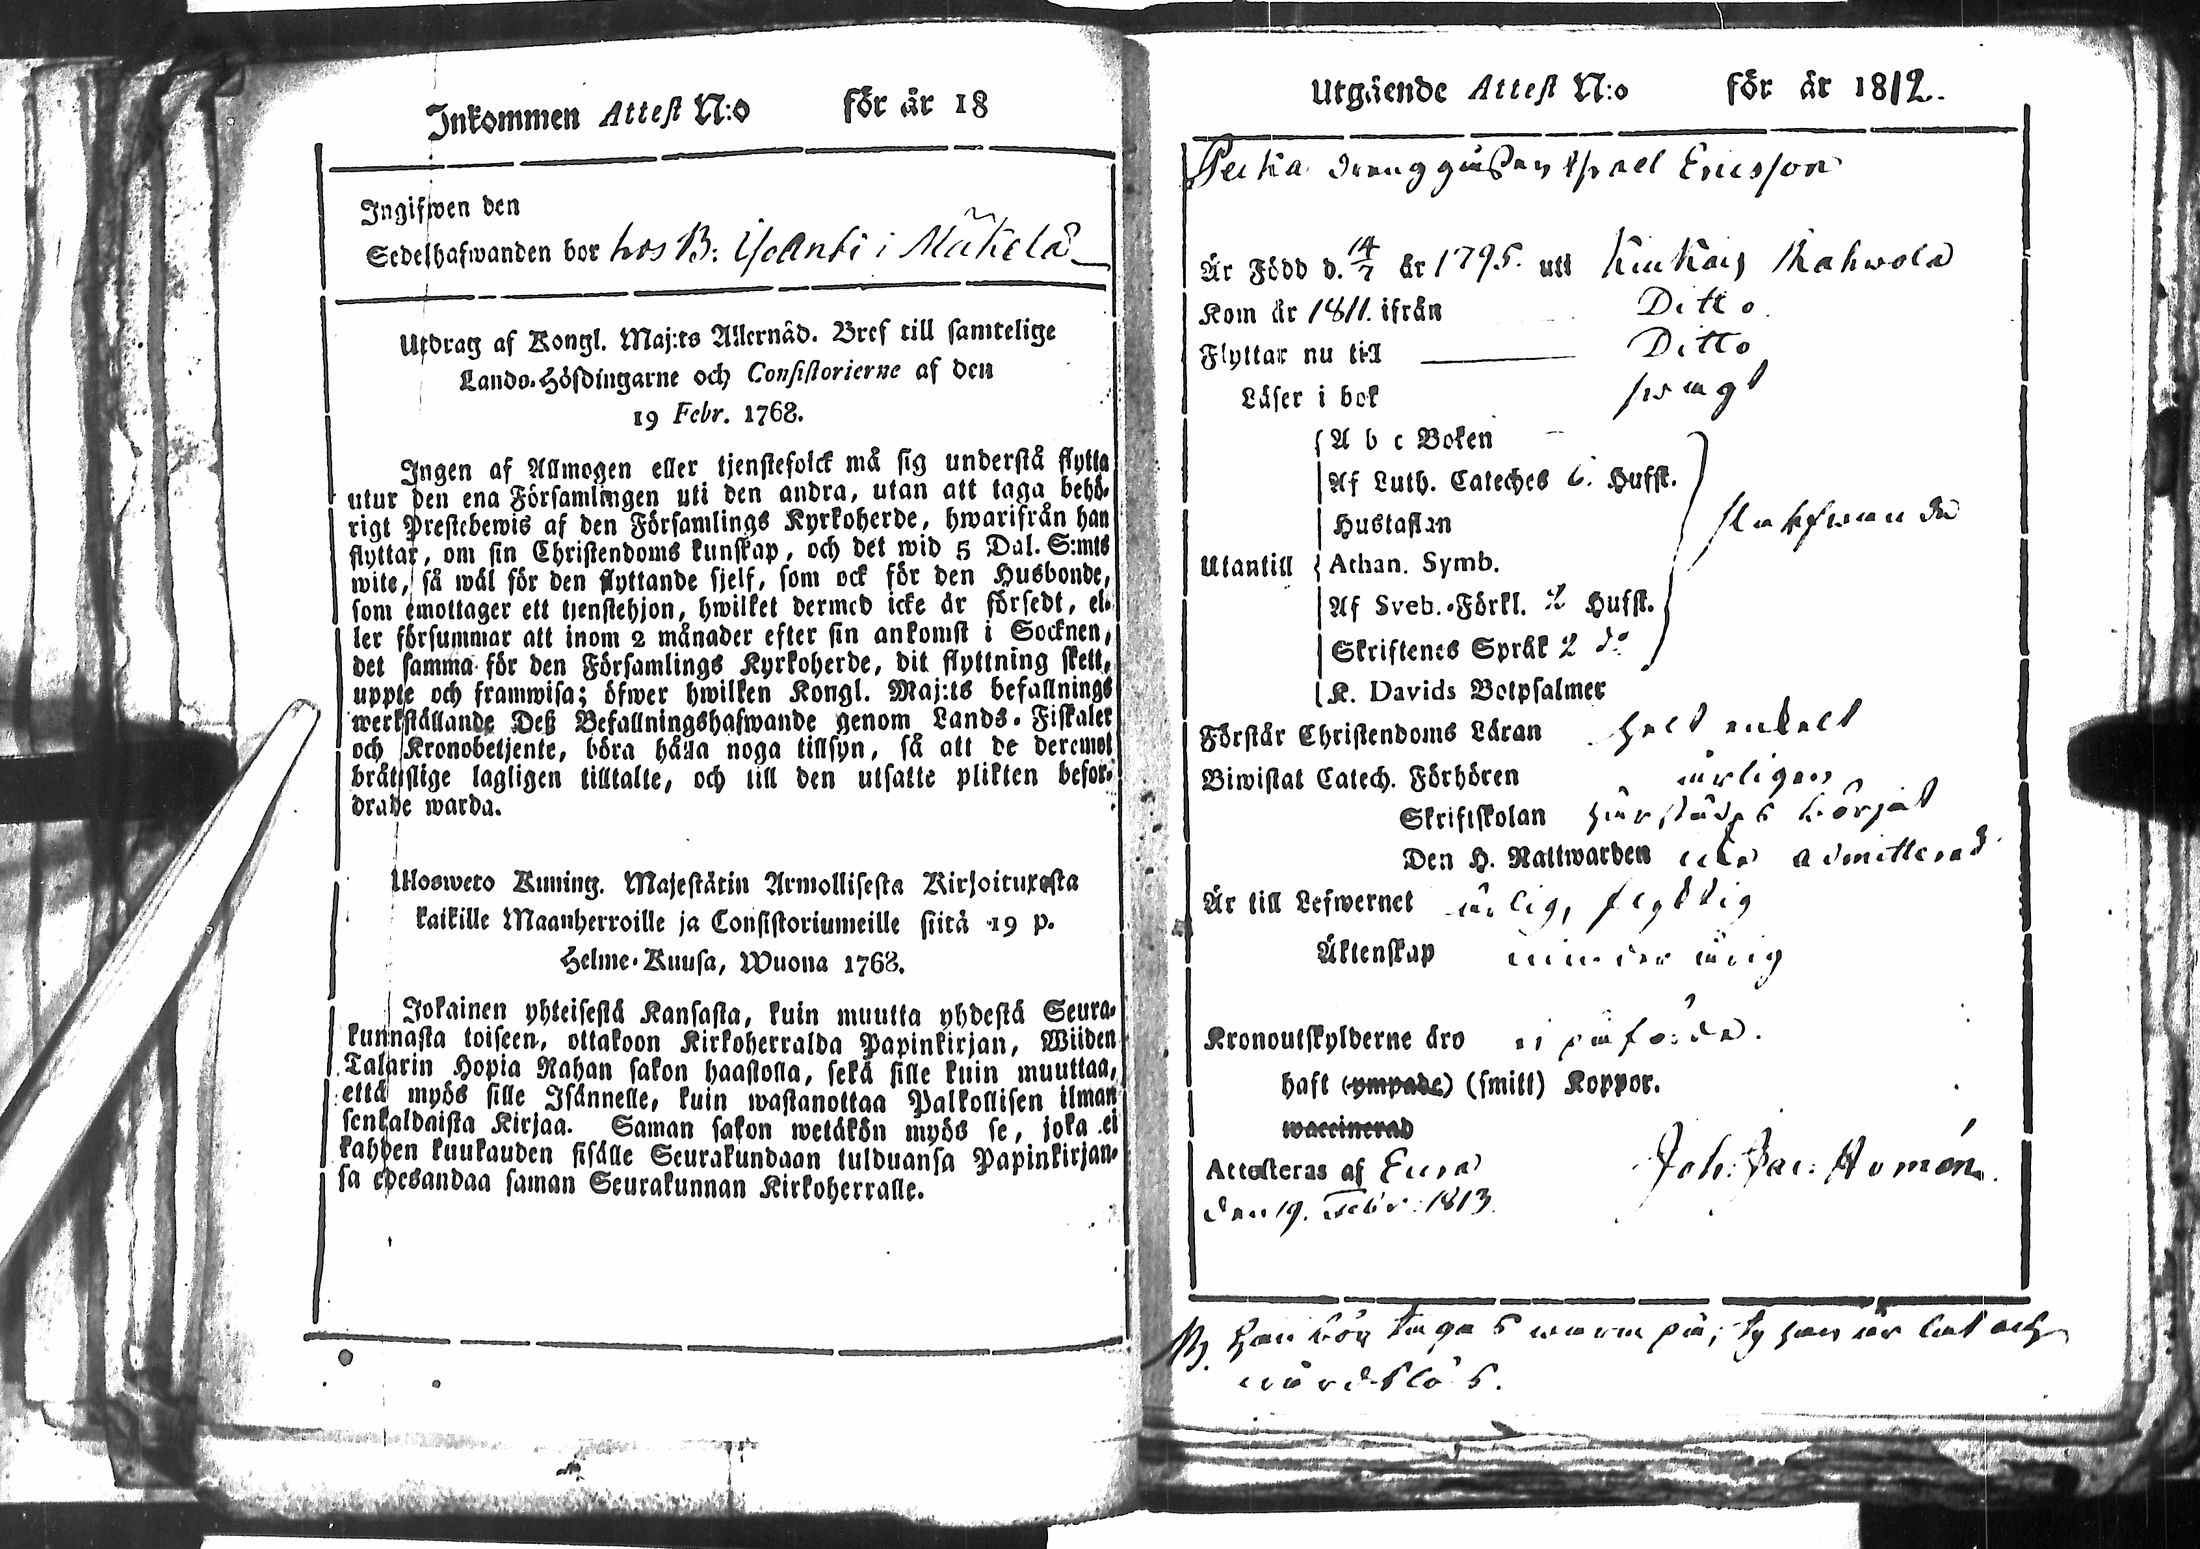 Inkommen Attest N:o för år 18
Ingifwen den
Sedelhafwanden bor hos B: Yoanti i Mäkelä
Utdrag af Kongl. Maj:ts Allernåd. Bref till samtelige
Lands-Höfdingarne och Consistorierne af den
19 Febr. 1768.
Ingen af Allmogen eller tjenstefolck må sig understå flytta
utur den ena Församlingen uti den andra, utan att taga behö-
rigt Prestebewis af den Församlings Kyrkoherde, hwarifrån han
flyttar, om sin Christendoms kunskap, och det wid 5 Dal. S:mts
wite, så wäl för den flyttande sjelf, som ock för den Husbonde,
som emottager ett tjenstehjon, hwilket dermed icke är försedt, el-
ler försummar att inom 2 månader efter sin ankomst i Socknen,
det samma för den Församlings Kyrkoherde, dit flyttning skett,
uppte och framwisa; öfwer hwilken Kongl. Maj:ts befallnings
werkställande Deß Befallningshafwande genom Lands-Fiskaler
och Kronobetjente, böra hålla noga tillsyn, så att de deremot
bråtslige lagligen tilltalte, och till den utsatte plikten befor-
drade warda.
Ulosweto Kuning. Majestätin Armollisesta Kirjoituxesta
kaikille Maanherroille ja Consistoriumeille siitä 19 p.
Helme-Kuusa, Wuona 1768.
Jokainen yhteisestä Kansasta, kuin muutta yhdestä Seura-
kunnasta toiseen, ottakoon Kirkoherralda Papinkirjan, Wiiden
Talarin Hopia Rahan sakon haastolla, sekä sille kuin muuttaa,
että myös sille Isännelle, kuin wastanottaa Palkollisen ilman
senkaldaista Kirjaa. Saman sakon wetäkön myös se, joka ei
kahden kuukauden sisälle Seurakundaan tulduansa Papinkirjan-
sa edesandaa saman Seurakunnan Kirkoherralle.
Utgående Attest N:o för år 1812.
Pecka drenggåßen Isael Ericsson
Är Född d. 14/7 år 1795. uti Kiukais Rahwola
Kom år 1811. ifrån Ditto
Flyttar nu till Ditto
Läser i bok swagt
A b c Boken
Af Luth. Cateches 6. Hufst.
Hustaflan
Utantill Athan. Symb.
Af Sveb.-Förkl. 2 Hufst.
Skriftenes Språk 2 do
K. Davids Botpsalmer
Förstår Christendoms Läran helt enkelt
Biwistat Catech. Förhören årligen
Skriftskolan härstädes börjat
Den H. Nattwarden icke admitterad
Är till Lefwernet ärlig, flyktig
Äktenskap minderårig
Kronoutskylderne äro ej påförde.
haft (ympade) (smitt) Koppor.
waccinerad
Attesteras af Eura Joh: Jac: Homén.
den 19. Febr: 1813.
NB. Han bör tagas warm på, ty han är lat och
wårdslös.